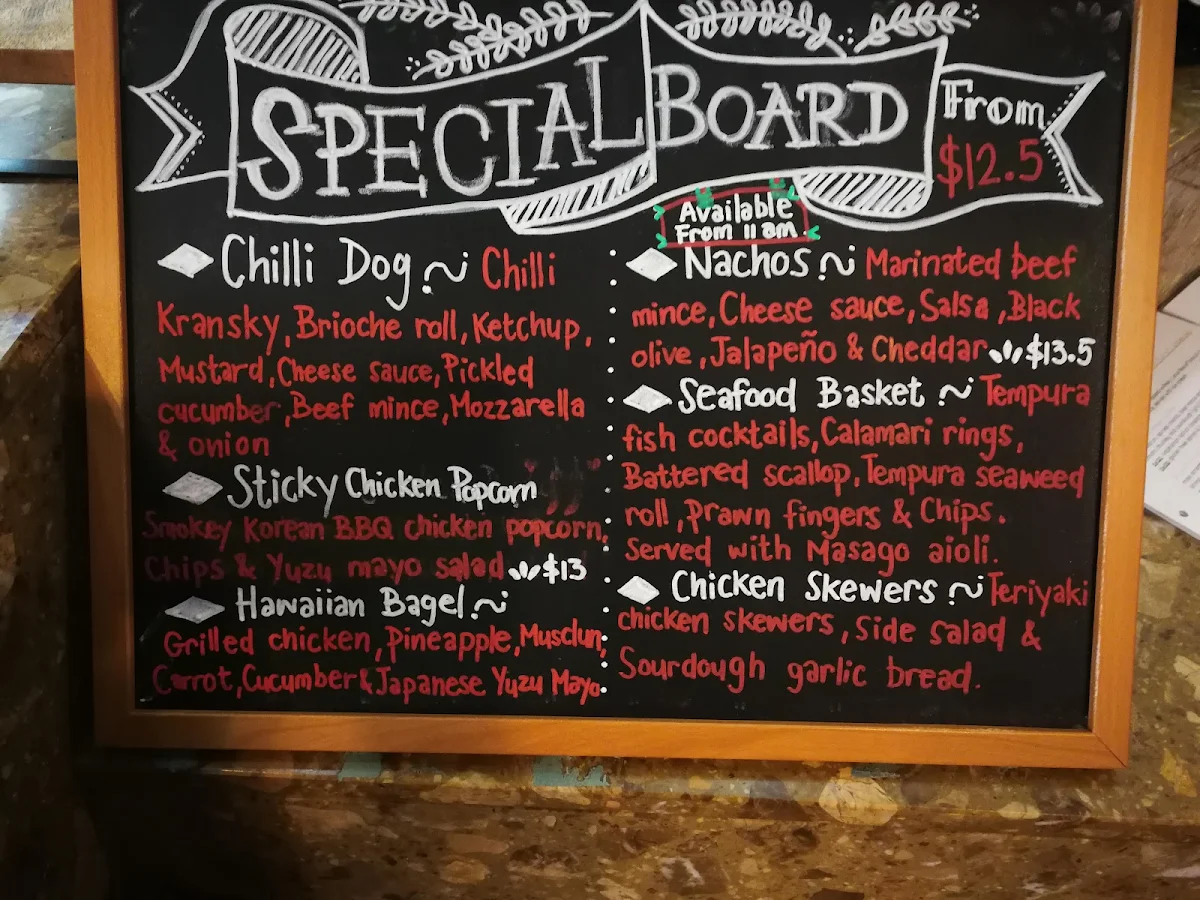 SPECIAL BOARD
From
$12.5
Available
From 11 am
Chilli Dog ~ Chilli
Kransky, Brioche roll, Ketchup,
Mustard, Cheese sauce, Pickled
cucumber, Beef mince, Mozzarella
& onion
Sticky Chicken Popcorn
Smokey Korean BBQ chicken popcorn,
Chips & Yuzu mayo salad $13
Hawaiian Bagel ~
Grilled chicken, Pineapple, Musclun,
Carrot, Cucumber & Japanese Yuzu Mayo.
Nachos ~ Marinated beef
mince, Cheese sauce, Salsa, Black
olive, Jalapeño & Cheddar $13.5
Seafood Basket ~ Tempura
fish cocktails, Calamari rings,
Battered scallop, Tempura seaweed
roll, Prawn fingers & Chips.
Served with Masago aioli.
Chicken Skewers ~ Teriyaki
chicken skewers, Side Salad &
Sourdough garlic bread.